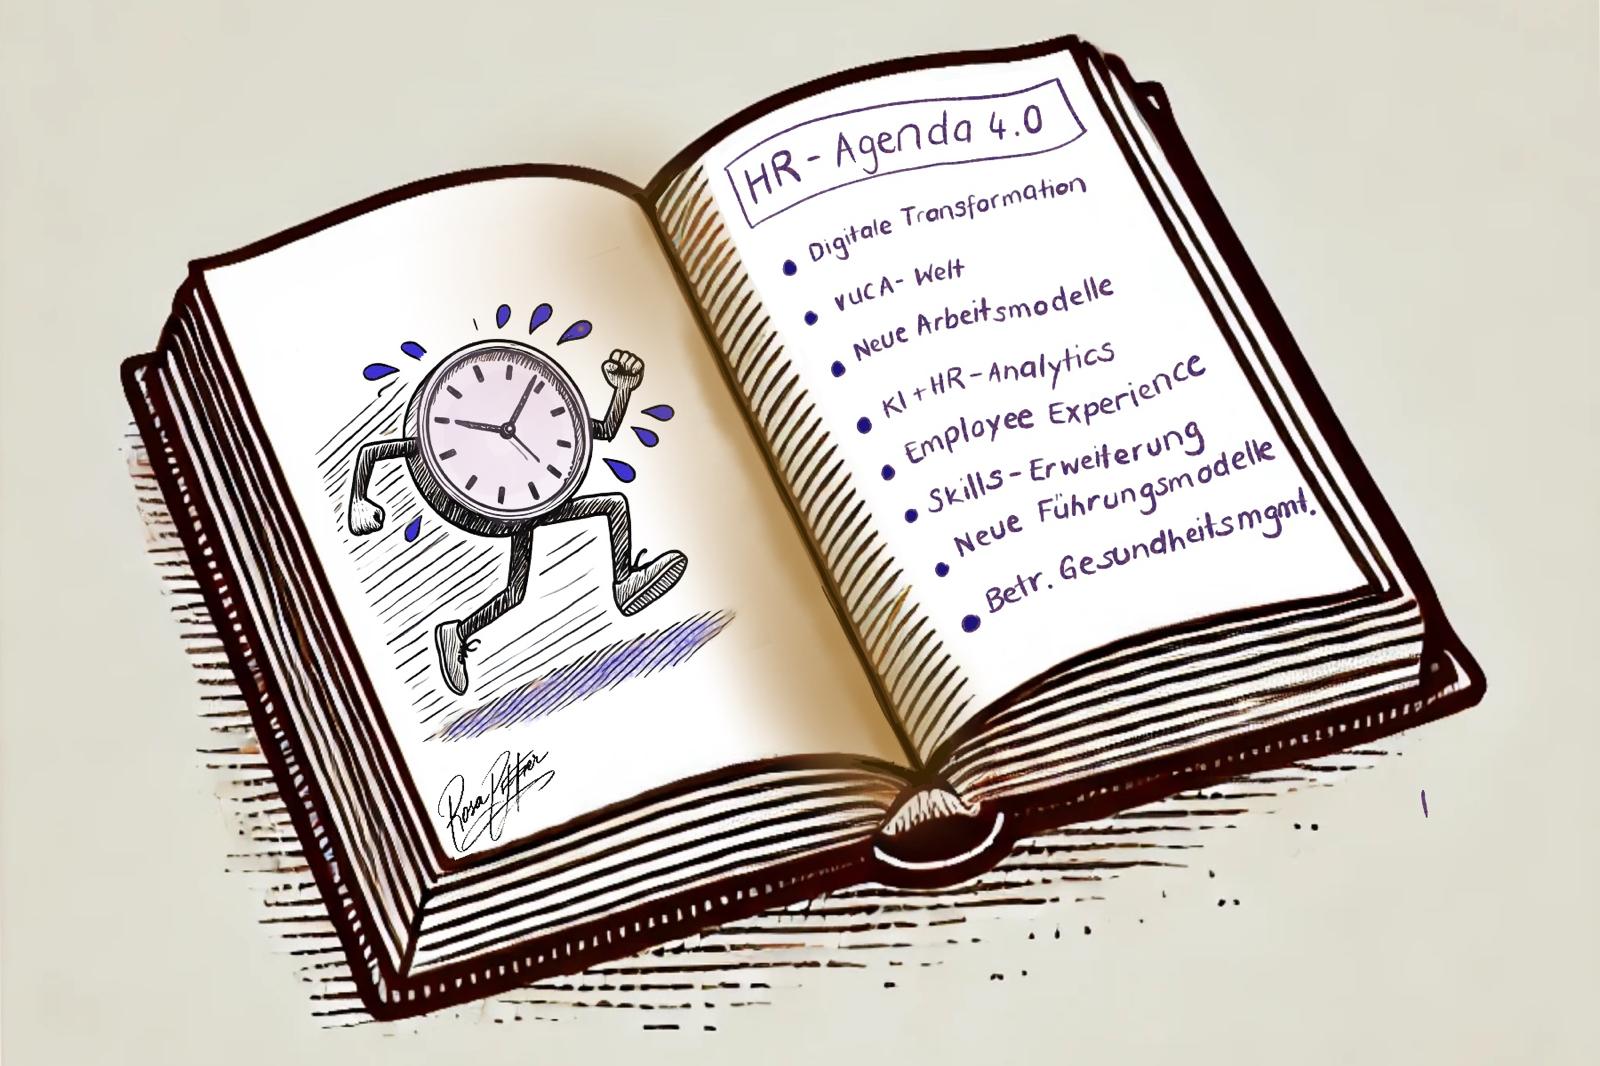 HR-Agenda 4.0
Digitale Transformation
VUCA-Welt
Neue Arbeitsmodelle
KI+HR-Analytics
Employee Experience
Skills-Erweiterung
Neue Führungsmodelle
Betr. Gesundheitsmgmt.
Rosa